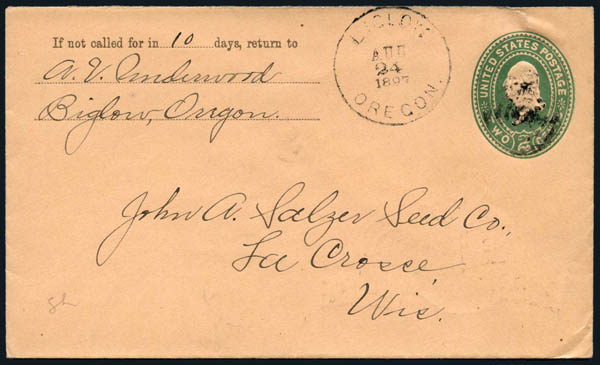 If not called for in 10 days, return to
A. V. Underwood
Biglow, Oregon.
BIGLOW
24
1897
OREGON.
UNITED STATES POSTAGE
TWO
John A. Salzer Seed Co.,
La Crosse,
Wis.